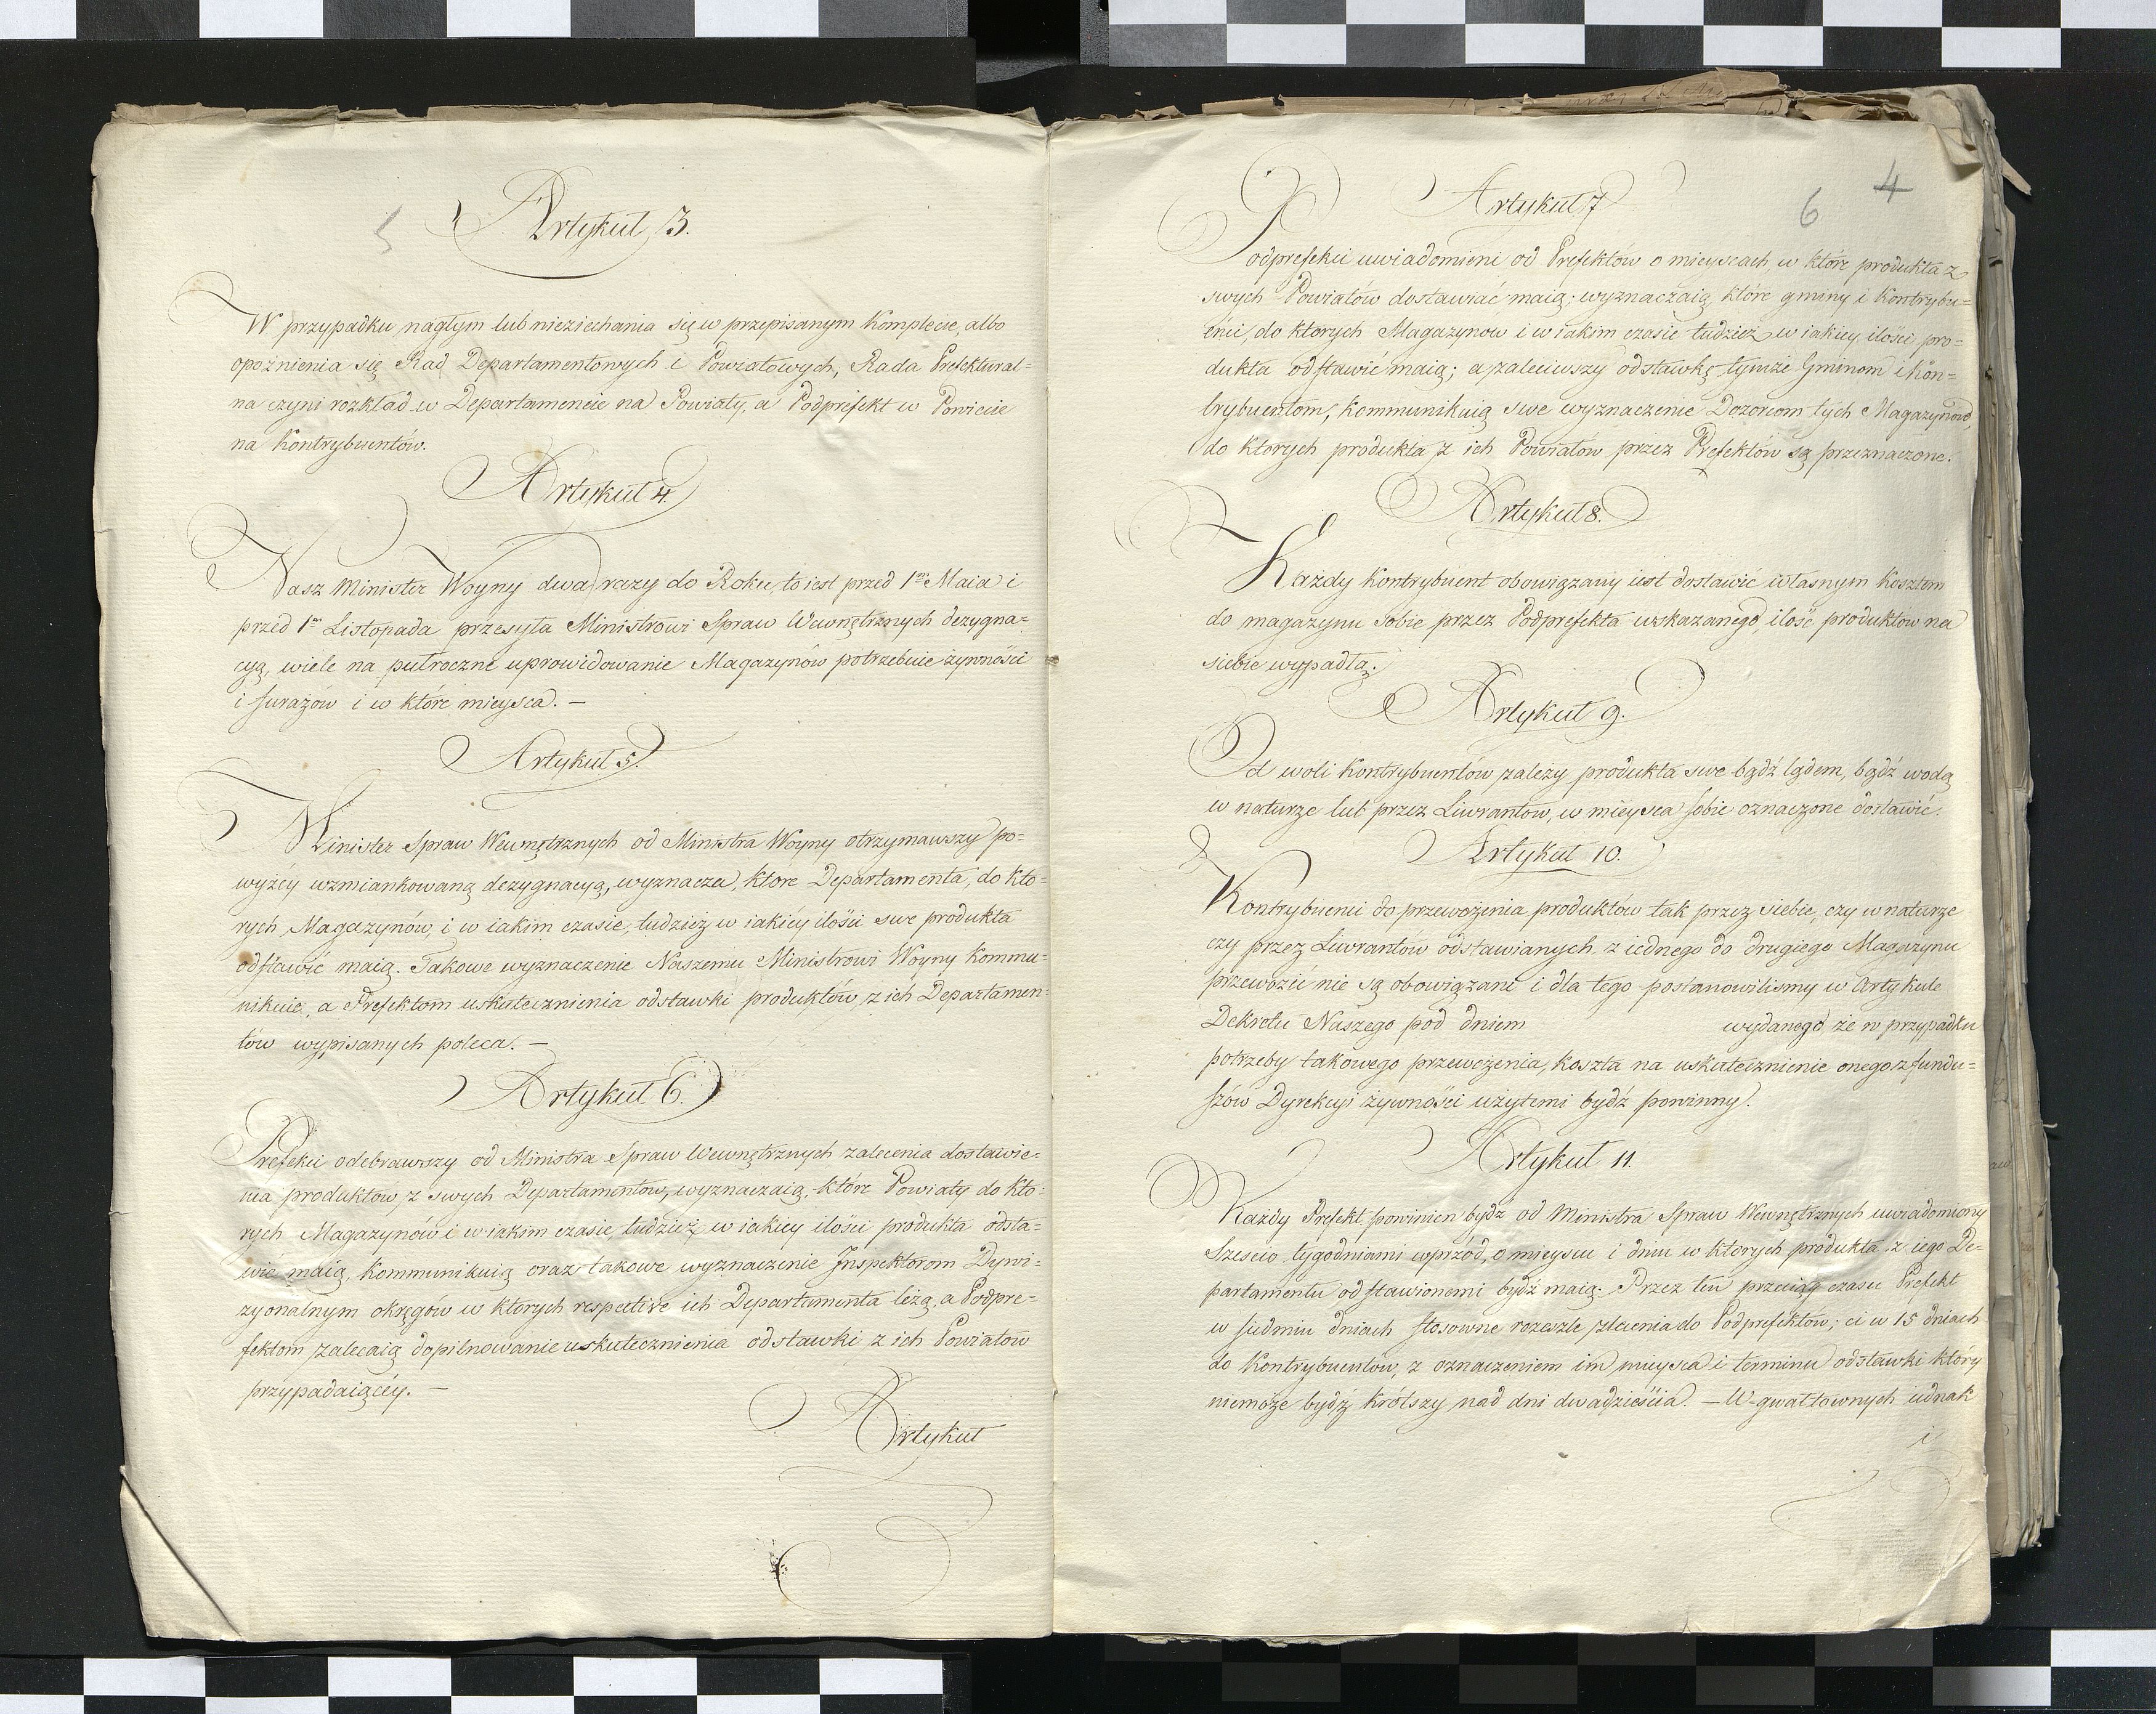 5
Artykuł 3.
W przypadku nagłym lub nieziechania się w przepisanym komplecie, albo
opoźnienia się Rad Departamentowych i Powiatowych, Rada Prefektural=
na czyni rozkład w Departamencie na Powiaty, a Podprefekt w Powiecie
na Kontrybuentów.
Artykuł 4.
Nasz Minister Woyny dwa razy do Roku, to iest przed 1m Maia i
przed 1m Listopada przesyła Ministrowi Spraw Wewnętrznych dezygna=
cyą, wiele na pułroczne uprowidowanie Magazynów potrzebuie żywności
i furażów i w które mieysca. —
Artykuł 5.
Minister Spraw Wewnętrznych od Ministra Woyny otrzymawszy po=
wyżéy wzmiankowaną dezygnacyą, wyznacza, ktore Departamenta, do któ=
rych Magazynów, i w iakim czasie, tudzież w iakiéy ilości swe produkta
odstawić maią. Takowe wyznaczenie Naszemu Ministrowi Woyny kommu=
nikuie, a Prefektom uskutecznienia odstawki produktów z ich Departamen=
tów wypisanych poleca. —
Artykuł 6.
Prefekci odebrawszy od Ministra Spraw Wewnętrznych zalecenia dostawie=
nia produktów z swych Departamentów, wyznaczaią, które Powiaty do któ=
rych Magazynów i w iakim czasie, tudzież w iakiey ilości produkta odsta=
wić maią, kommunikuią oraz takowe wyznaczenie Inspektorom Dywi=
zyonalnym okręgów w ktorych respective ich Departamenta leżą, a Podpre=
fektom zalecaią dopilnowanie uskutecznienia odstawki z ich Powiatow
przypadaiącéy. —
Artykuł
4
6
Artykuł 7
Podprefekci uwiadomieni od Prefektów o mieyscach, w które produkta z
swych Powiatów dostawiać maią; wyznaczaią, które gminy i Kontrybu=
enci, do ktorych Magazynow i w iakim czasie tudzież w iakiey ilości pro=
dukta odstawić maią; a zaleciwszy odstawkę tymże Gminom i Kon=
trybuentom, kommunikuią swe wyznaczenie Dozorcom tych Magazynów,
do ktorych produkta z ich Powiatów przez Prefektów są przeznaczone.
Artykuł 8.
Każdy Kontrybuent obowiązany iest dostawić własnym kosztem
do magazynu sobie przez Podprefekta wskazanego, ilość produktow na
siebie wypadłą.
Artykuł 9.
Od woli Kontrybuentów zależy produkta swe bądź lądem, bądź wodą
w naturze lub przez Liwrantow, w mieysca sobie oznaczone dostawić.
Artykuł 10.
Kontrybuenci do przewożenia produktów tak przez siebie, czy w naturze
czy przez Liwrantów odstawianych z iednego do drugiego Magazynu
przewozić nie są obowiązani i dla tego postanowilismy w Artykule
Dekretu Naszego pod dniem wydanego że w przypadku
potrzeby takowego przewożenia, koszta na uskutecznienie onego z fundu=
szów Dyrekcyi żywności użytemi bydź powinny.
Artykuł 11.
Każdy Prefekt powinien bydź od Ministra Spraw Wewnętrznych uwiadomiony
Sześcio tygodniami wprzód, o mieyscu i dniu w ktorych produkta z iego De=
partamentu odstawionemi bydź maią. Przez ten przeciąg czasu Prefekt
w siedmiu dniach stosowne rozeszle zlecenia do Podprefektów; ci w 15 dniach
do Kontrybuentów, z oznaczeniem im mieysca i terminu odstawki który
niemoże bydź krotszy nad dni dwadzieścia. — W gwałtownych iednak
i